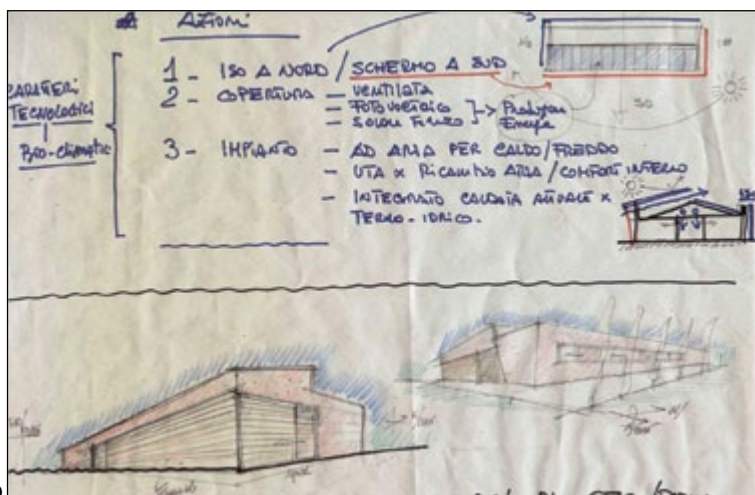 AZIONI
CARATTERI
TECNOLOGICI
BIO-climatic
1 - ISO A NORD / SCHERMO A SUD
2 - COPERTURA - VENTILATA
- FOTOVOLTAICO
- SOLARE TERMICO
Produzione
Energia
3 - IMPIANTO - AD ARIA PER CALDO/FREDDO
- UTA x RICAMBIO ARIA / COMFORT INTERNO
- INTEGRATO CALDAIA ATTUALE x
TERMO-IDRICO.